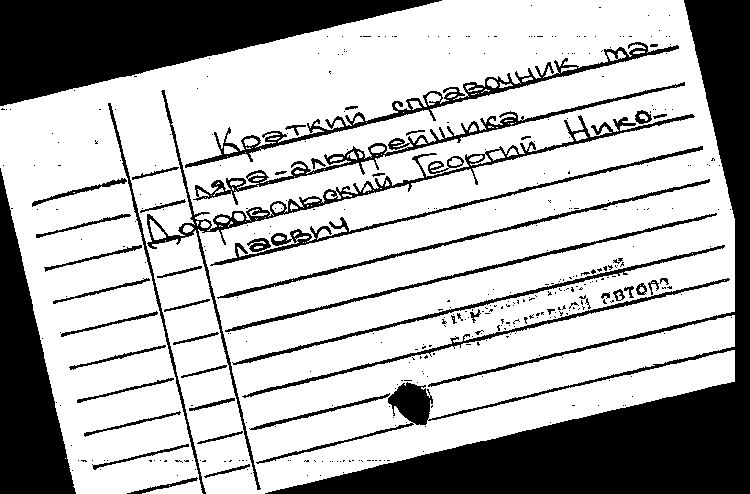 Краткий справочник ма-
ляра-альфрейщика.
Добровольский, Георгий Нико-
лаевич
под фамилией автора